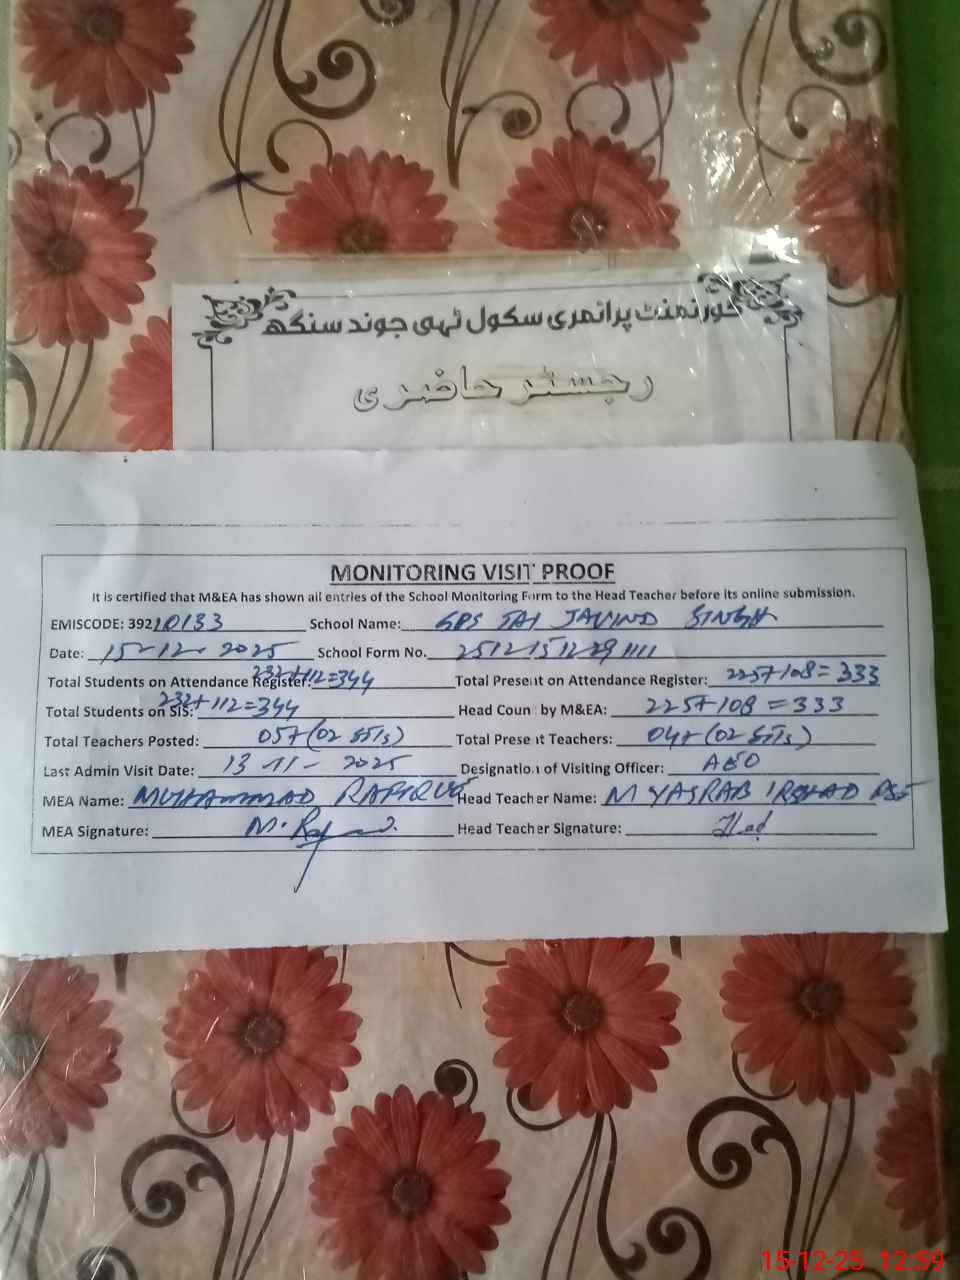 گورنمنٹ پرائمری سکول ٹہی جوند سنگھ
رجسٹر حاضری
MONITORING VISIT PROOF
It is certified that M&EA has shown all entries of the School Monitoring Form to the Head Teacher before its online submission.
EMISCODE: 39210133 School Name: GPS TAI JAVIND SINGH
Date: 15-12-2025 School Form No. 251215122911 11
Total Students on Attendance Register: 232+112=344 Total Present on Attendance Register: 225+108=333
Total Students on SIS: 232+112=344 Head Count by M&EA: 225+108=333
Total Teachers Posted: 05+(02 SSTs) Total Present Teachers: 04+(02 SSTs)
Last Admin Visit Date: 13-11-2025 Designation of Visiting Officer: AEO
MEA Name: MUHAMMAD RAFIQUE Head Teacher Name: M YASRAB IRSHAD
MEA Signature: Head Teacher Signature:
15-12-25 12:59